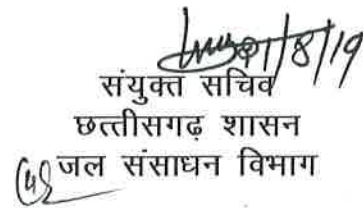 01/8/19
संयुक्त सचिव
छत्तीसगढ़ शासन
जल संसाधन विभाग